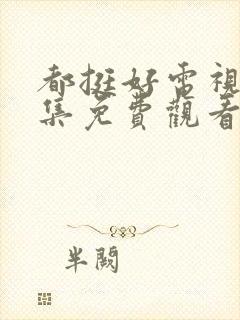 都挺好電視
集免費觀看
半闕